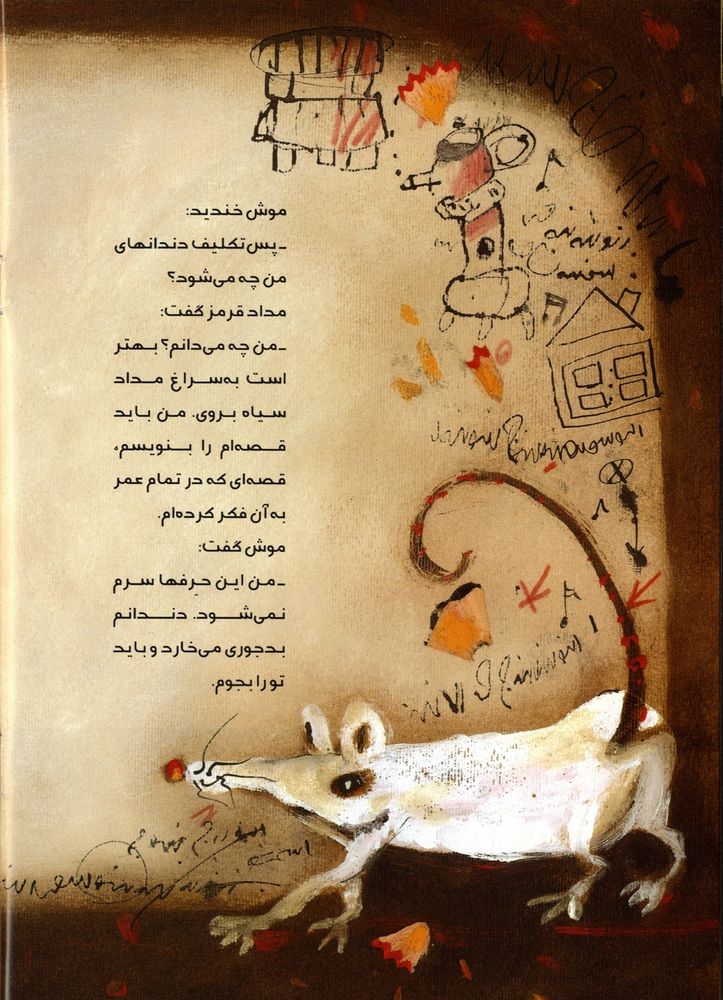 موش خندید:
ـ پس تکلیف دندانهای
من چه می‌شود؟
مداد قرمز گفت:
ـ من چه می‌دانم؟ بهتر
است به‌سراغ مداد
سیاه بروی. من باید
قصه‌ام را بنویسم،
قصه‌ای که در تمام عمر
به آن فکر کرده‌ام.
موش گفت:
ـ من این حرفها سرم
نمی‌شود. دندانم
بدجوری می‌خارد و باید
تو را بجوم.